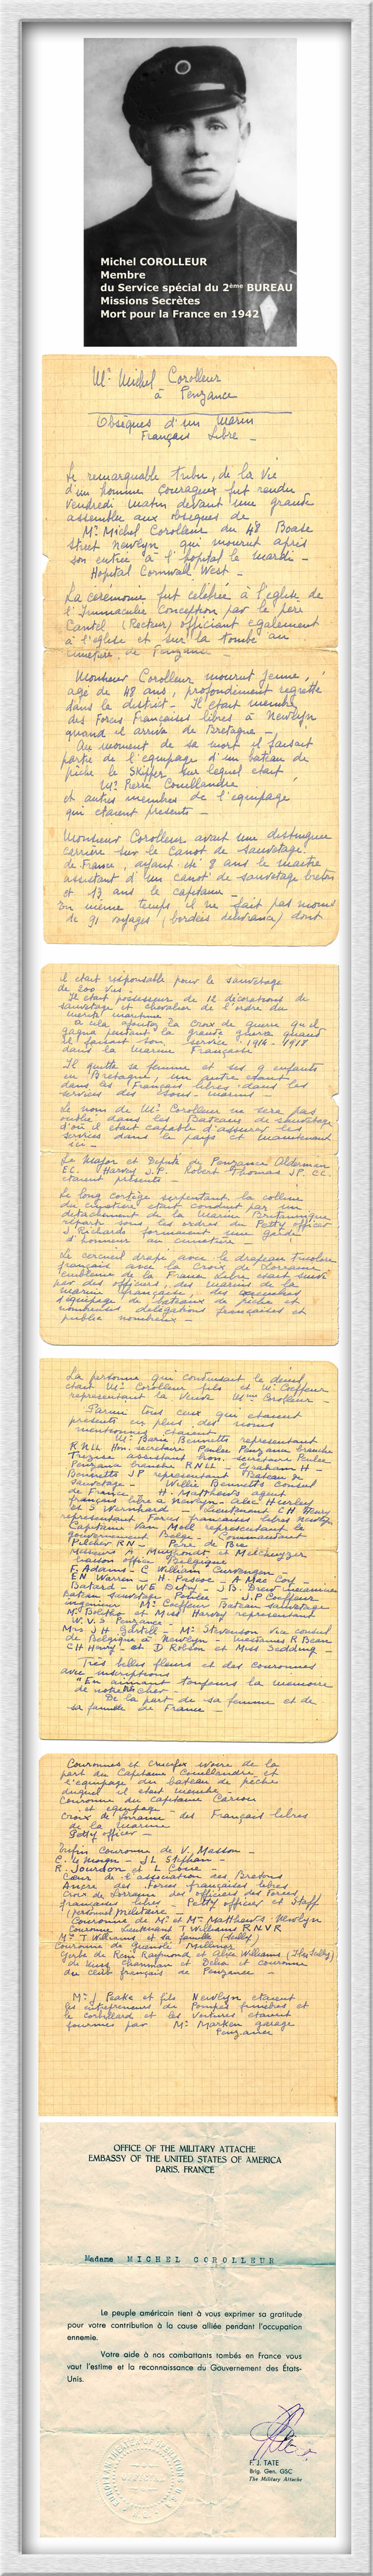 Michel COROLLEUR
Membre
du Service spécial du 2ème BUREAU
Missions Secrètes
Mort pour la France en 1942
Mr Michel Corolleur
à Penzance
Obsèques d'un Marin
Français Libre _
Le remarquable tribu, de la Vie
d'un homme Courageux fut rendu
Vendredi matin devant une grande
assemblée aux obsèques de
Mr Michel Corolleur du 48 Boase
Street Newlyn qui mourut après
son entrée à l'hôpital le mardi _
Hopital Cornwall West _
La cérémonie fut célébrée à l'église de
l'Immaculée Conception par le père
Cantel (Recteur) officiant également
à l'église et sur la tombe au
cimetière de Penzance _
Monsieur Corolleur mourut jeune,
agé de 48 ans, profondément regretté
dans le district _ Il était membre
des Forces Françaises libres à Newlyn
quand il arriva de Bretagne _
Au moment de sa mort il faisait
partie de l'équipage d'un bateau de
pêche le Skipper sur lequel était
Mr Pierre Couillandre
et autres membres de l'équipage
qui étaient présents _
Monsieur Corolleur avait une distinguée
carrière sur le Canot de Sauvetage
de France, ayant été 8 ans le maître
assistant d'un canot de sauvetage breton
et 13 ans le capitaine _
En même temps il ne fait pas moins
de 91 voyages (bordées delivrance) dont
il était responsable pour le sauvetage
de 200 Vies _
Il était possesseur de 12 décorations de
sauvetage et chevalier de l'ordre du
mérite maritime
a cela ajoutez la Croix de guerre qu'il
gagna pendant la grande guerre quand
il faisait son service 1914 - 1918
dans la Marine Française
Il quitte sa femme et ses 9 enfants
en Bretagne, un autre étant
dans les Français libres dans les
services des sous-marins
Le nom de Mr Corolleur ne sera pas
oublié dans les Bateaux de sauvetage
d'où il était capable d'assurer les
services dans le pays et maintenant
ici _
Le Major et Député de Penzance Alderman
EC. Harvey J.P. Robert Thomas JP EC.
étaient présents _
Le long cortège serpentant la colline
du cimetière était conduit par un
détachement de la Marine Britannique
réparti sous les ordres du Petty officer
J Richards formaient une garde
d'honneur au cimetière _
Le cercueil drapé avec le drapeau tricolore
français avec la Croix de Lorraine,
emblème de la France Libre était suivi
par des officiers, des marins de la
marine française, des
équipages de bateaux de pêche et
nombreuses délégations françaises et
public nombreux _
La personne qui conduisait le deuil
était Mr Corolleur fils et Mr Coiffeur
représentant la Veuve Mme Corolleur _
Parmi tous ceux qui étaient
présents en plus des noms
mentionnés étaient
Mr Barie Bennetts représentant
R.N.L.I. Hon. secrétaire Penlee Penzance branche
Trezise assistant hon. secrétaire Penlee
Penzance branche RNLI Graham H _
Bennetts JP représentant Bateau de
Sauvetage _ Willie Bennetts Consul
de France _ H. Matthews agent
français libre à Newlyn _ Alec Hurley
et S Wernhard _ Lieutenant CH Henry
représentant Forces françaises libres Newlyn
Capitaine Van Moll représentant le
gouvernement Belge _ Commandant
Pilcher RN _ Père de Bie
Messieurs A. Muyhondt et Metchuyzer
liaison office Belgique
F. Adams _ C William Curvengen _
EN Warren _ H. Pascoe _ A. Mac Coy _
Batard _ WE Bity _ J.B. Drew mécanicien
Bateau Sauvetage Penlee _ J.P Coiffeur
ingénieur Mr Coiffeur Bateau sauvetage
Mr Bolitho et Miss Harvy représentant
W.V.S Penzance _
Mrs JH Gartell _ Mr Stevenson Vice consul
de Belgique à Newlyn _ Mesdames R Bean
CH Henry _ et D. Robson et Miss Sedding _
Très belles fleurs et des couronnes
avec inscriptions
"En aimant toujours la mémoire
de notre cher _
De la part de sa femme et de
sa famille de France _
Couronnes et Crucifix ivoire de la
part du Capitaine Couillandre et
l'équipage du bateau de pêche
duquel il était membre _
Couronne du Capitaine Carson
et équipage _
Croix de Lorraine _ des Français libres
de la marine
Petty officer _
Enfin Couronne de V. Masson _
C. Le Moign _ J L Stephan _
R. Jourdon et L Coine _
Cœur de l'association des Bretons
Ancre des Forces françaises libres
Croix de Lorraine des officiers des Forces
françaises libres _ Petty officer et staff
(personnel militaire _
Couronne de Mr et Mme Matthews Newlyn
Couronne Lieutenant T Williams R.N.V.R
Mr T Williams et sa famille (Scilly)
Couronne de Guénolé Milliner
Gerbe de Remi Raymond et Alice Williams (Ile Scilly)
de Miss Charman et Delia et couronne
du club français de Penzance _
Mr J Peake et fils Newlyn étaient
les entrepreneurs de Pompes funèbres et
le corbillard et les voitures étaient
fournies par Mr Marken garage
Penzance
OFFICE OF THE MILITARY ATTACHE
EMBASSY OF THE UNITED STATES OF AMERICA
PARIS, FRANCE
Madame MICHEL COROLLEUR
Le peuple américain tient à vous exprimer sa gratitude
pour votre contribution à la cause alliée pendant l'occupation
ennemie.
Votre aide à nos combattants tombés en France vous
vaut l'estime et la reconnaissance du Gouvernement des États-
Unis.
F. J. TATE
Brig. Gen. GSC
The Military Attache